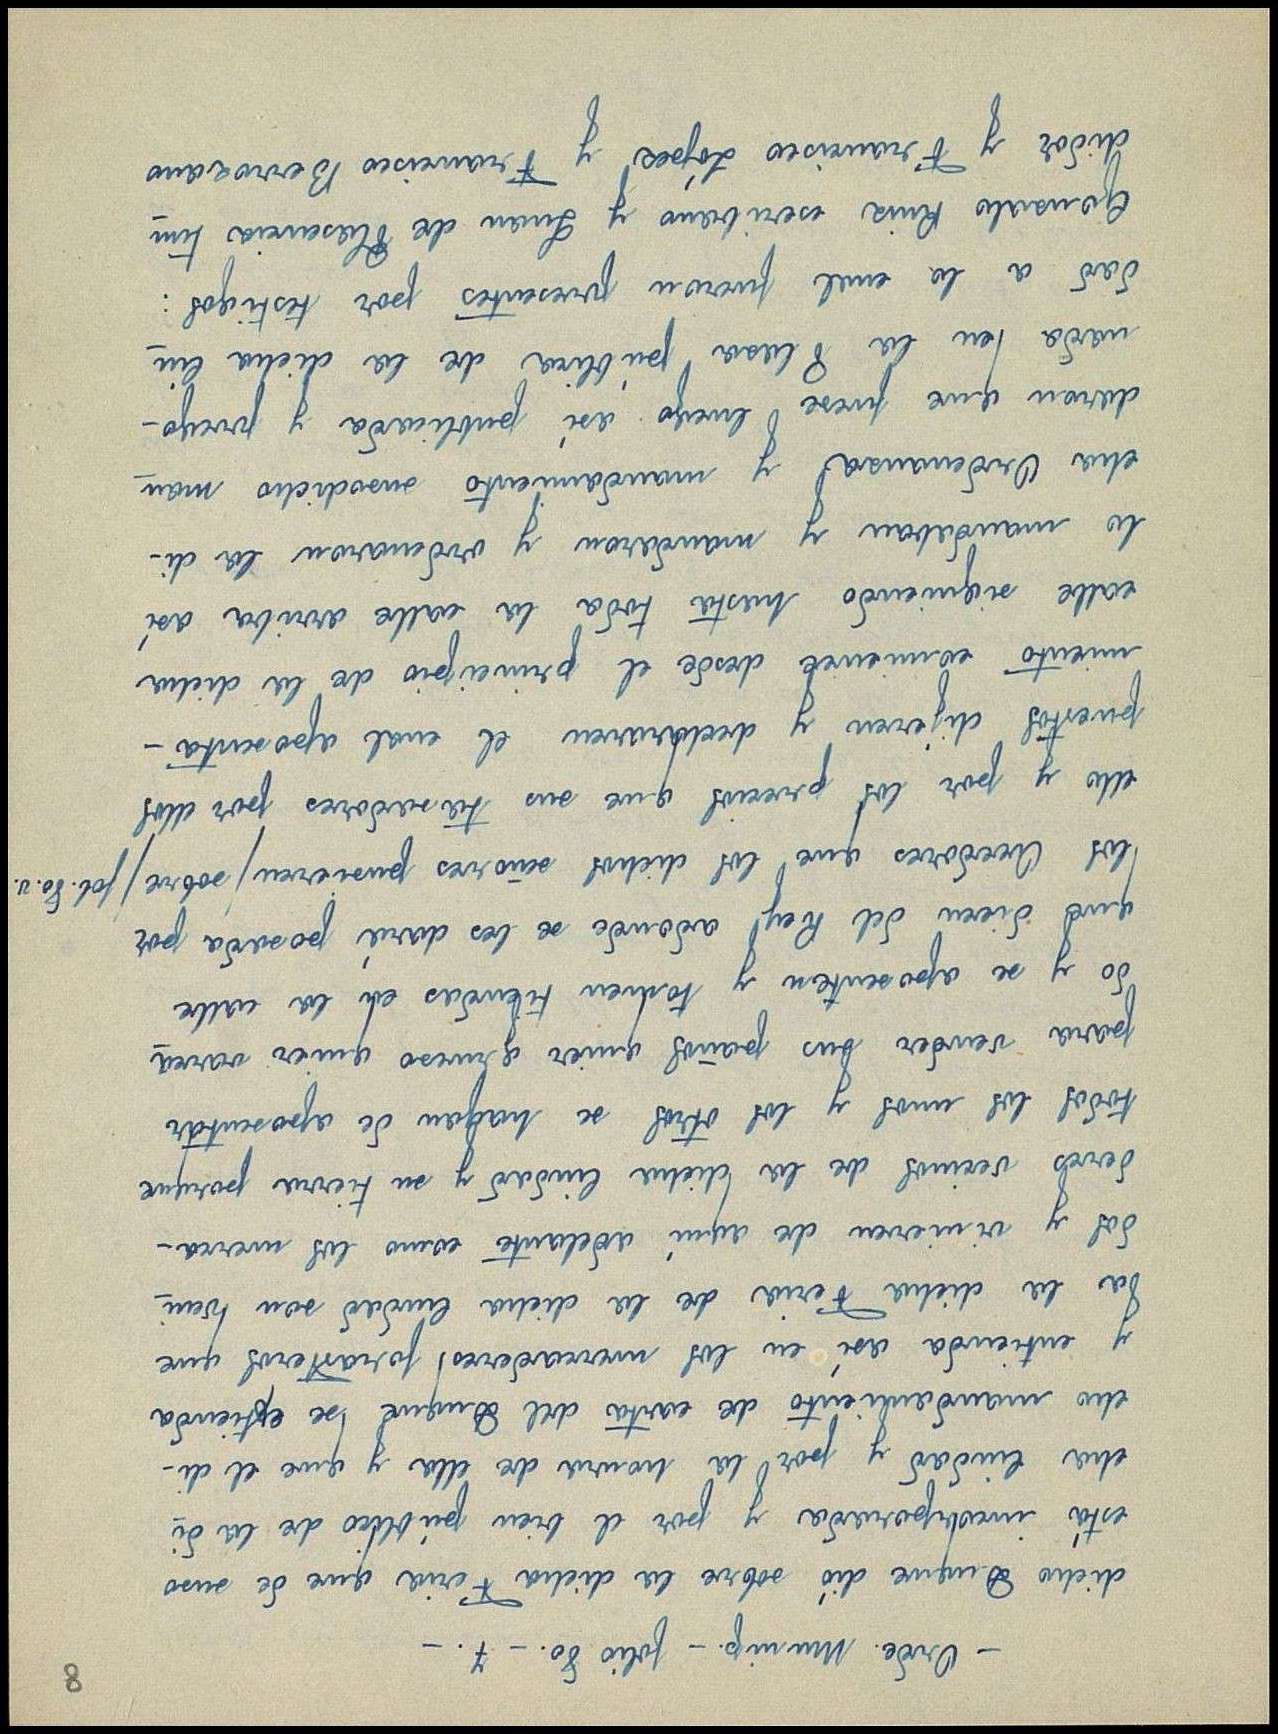 8
- Orde. Munip. - folio 80. - 7. -
dicho Duque dió sobre la dicha Feria que de suso
está incorporada y por el bien público de la di
cha ciudad y por la honra de ella y que el di-
cho mandamiento de carta del Duque se extienda
y entienda así en los mercaderes forasteros que
a la dicha Feria de la dicha ciudad son veni
dos y vinieren de aquí adelante como los merca-
deres vecinos de la dicha ciudad y su tierra porque
todos los unos y los otros se hayan de aposentar
para vender sus paños quier grueso quier varea
do y se aposenten y tomen tiendas en la calle
que dicen del Rey adonde se les dará posada por
los Veedores que los dichos señores pusieren / sobre / fol. 80. v.
ello y por los precios que sus tasadores por ellos
puestos dijeren y declararen el cual aposenta-
miento comience desde el principio de la dicha
calle siguiendo hasta toda la calle arriba así
lo mandaban y mandaron y ordenaron la di-
cha Ordenanza y mandamiento susodicho man
daron que fuese luego así publicada y prego-
nada en la Plaza pública de la dicha ciu
dad a la cual fueron presentes por testigos:
Gonzalo Ruiz escribano y Juan de Plasencia tun
didor y Francisco López y Francisco Berrozano